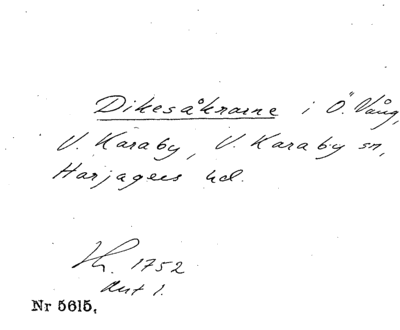 Dikesåkrarne i Ö. Vång,
V. Karaby, V. Karaby sn,
Harjagers hd.
Lh. 1752
Akt 1.
Nr 5615,